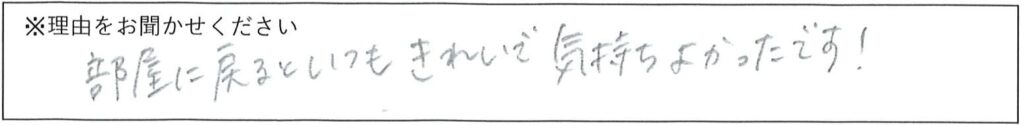 ※理由をお聞かせください
部屋に戻るといつもきれいで気持ちよかったです！